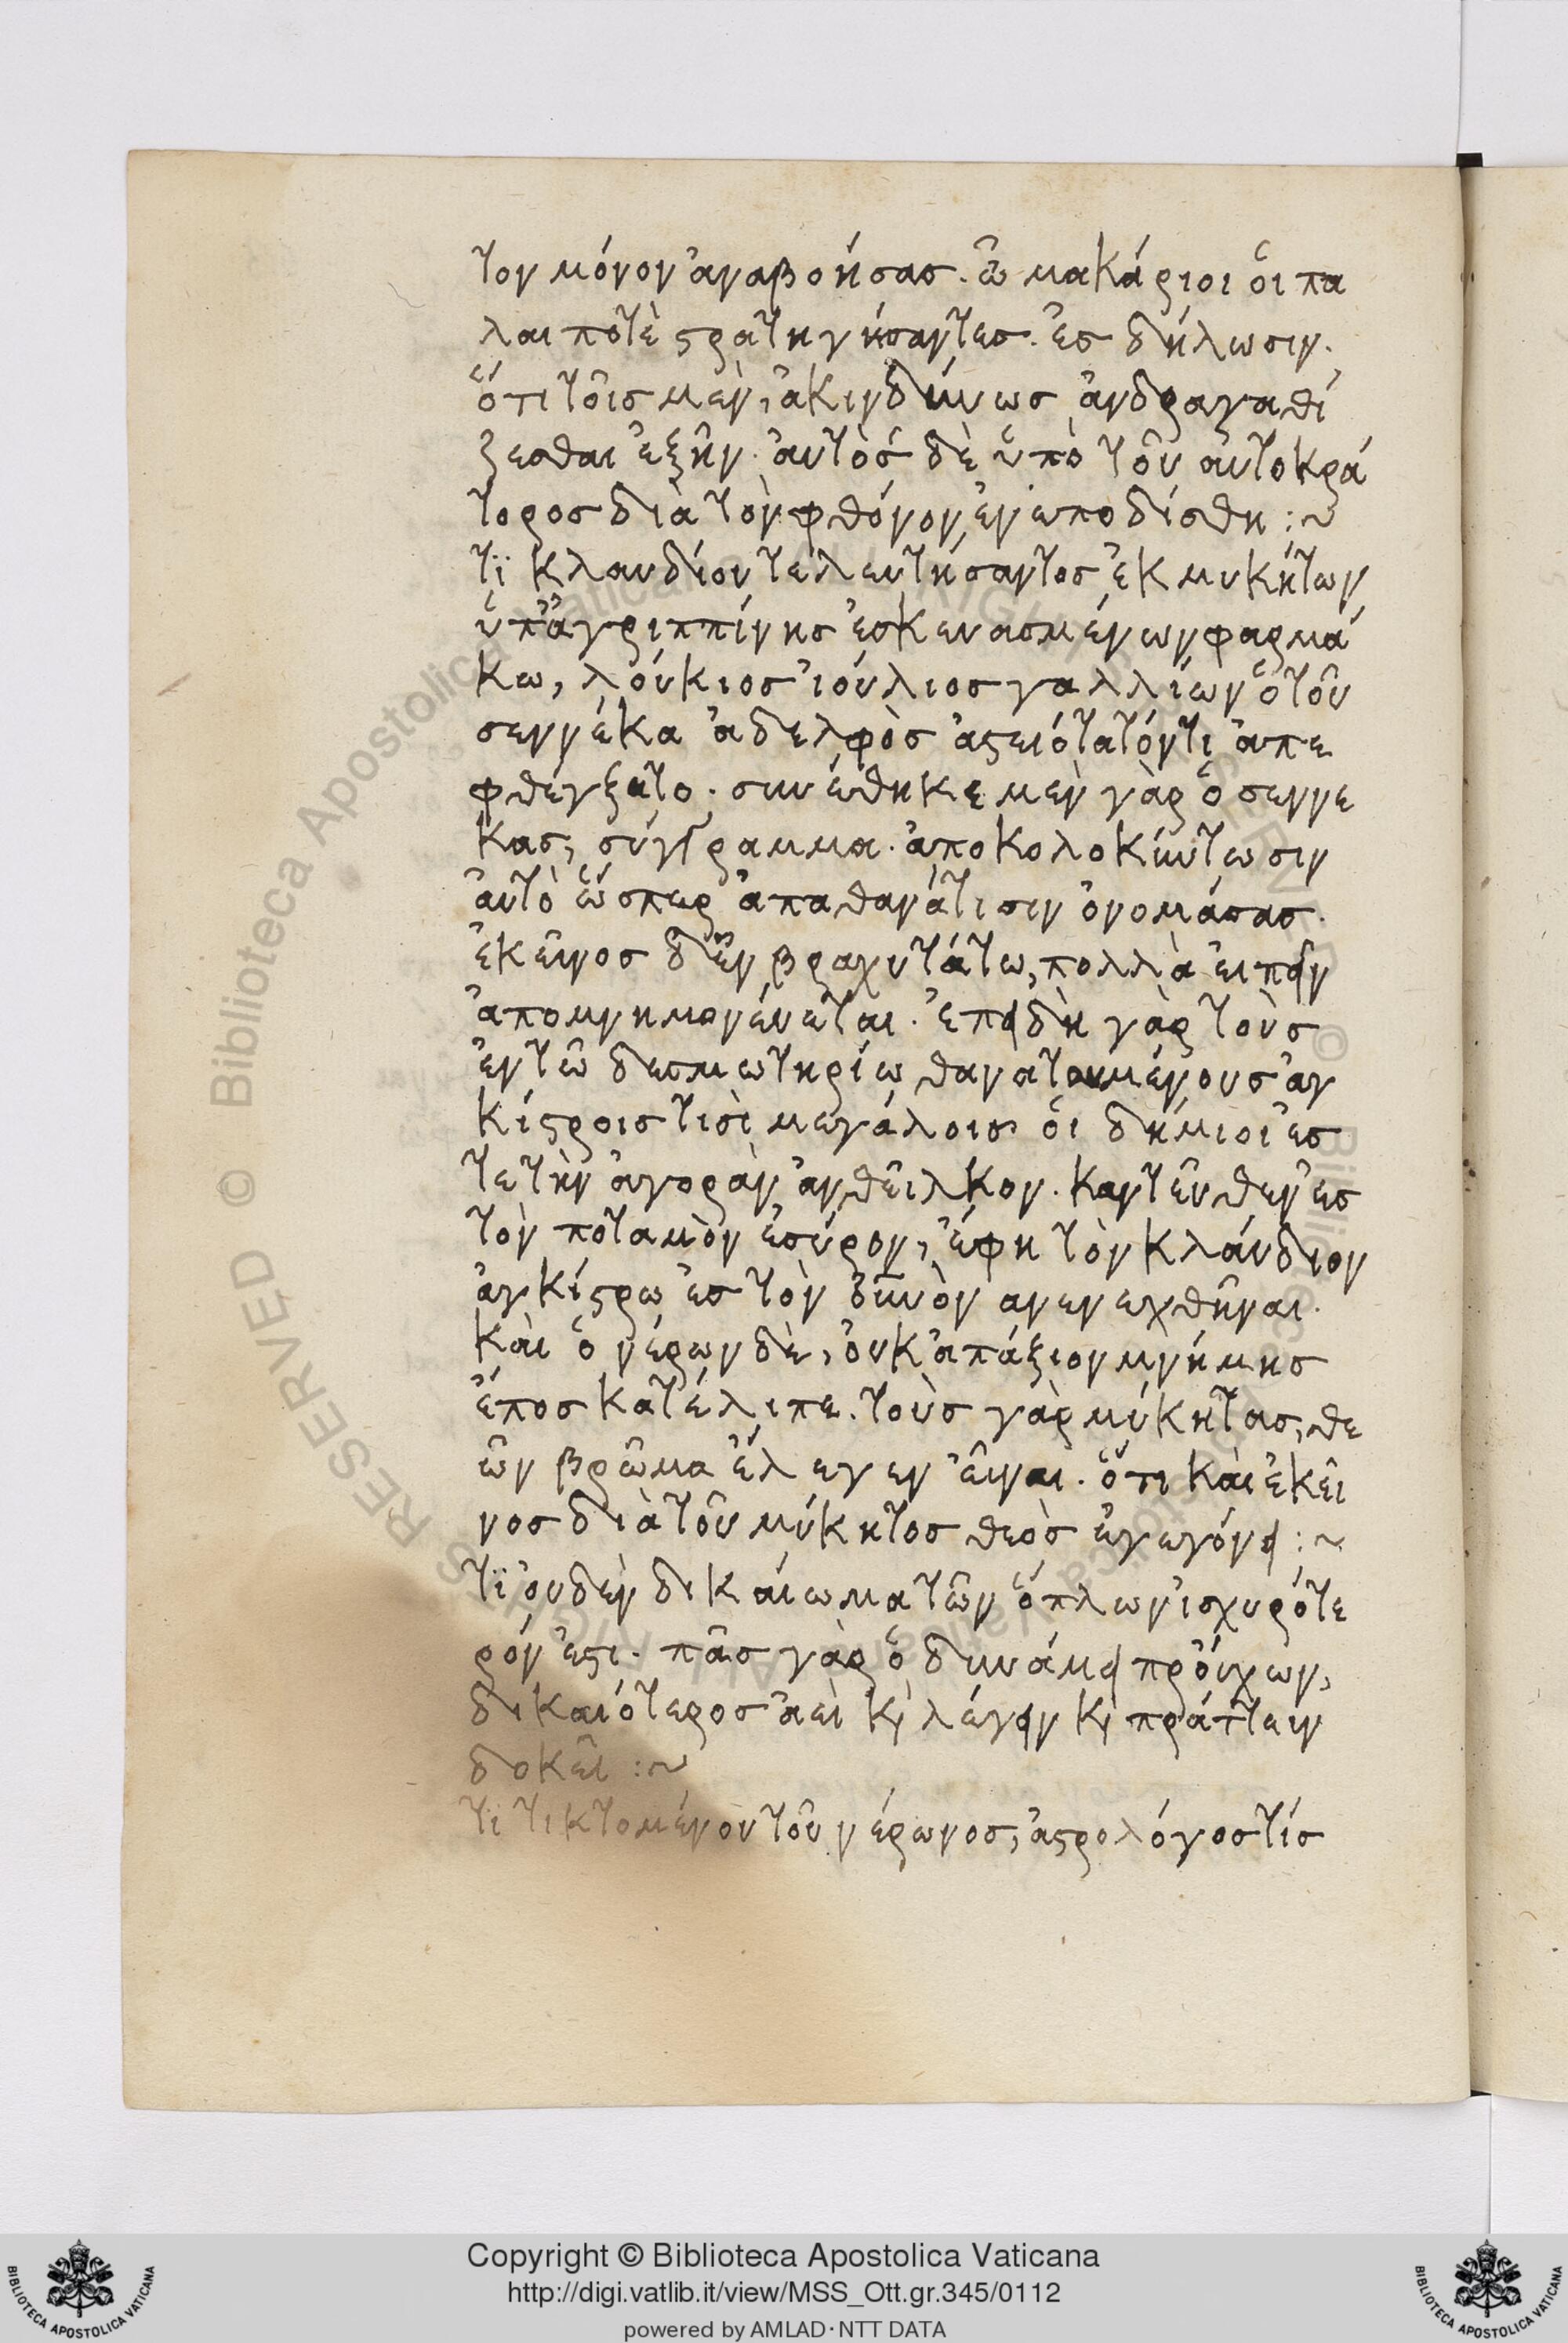 τον μόνον ἀναβοήσας. ὦ μακάριοι ὅι πα
λαι ποτὲ στρατηγήσαντες. ἐς δήλωσιν.
ὅτι τοῖς μὲν, ἀκινδύνως ἀνδραγαθί
ζεσθαι ἐξῆν. ἀυτὸς δὲ ὑπὸ τοῦ αὐτοκρά
τορος διὰ τὸν φθόνον ἐνεποδίσθη :~
Τϊ Κλαυδίου τελευτήσαντος ἐκ μυκήτων
ὑπ' ἀγριππίνης ἐσκευασμένων φαρμά
κω, λούκιος ἰούλιος γαλλίων ὁ τοῦ
σεννέκα ἀδελφὸς ἀστειότατόν τι ἀπε
φθέγξατο. συνέθηκε μὲν γὰρ ὁ σεννε
κας, σύγγραμμα. ἀποκολοκύντωσιν
ἀυτὸ ὥσπερ ἀπαθανάτισιν ὀνομάσας.
ἐκεῖνος δ' ἐν βραχυτάτω, πολλὰ ἐιπεῖν
ἀπομνημονέυεται. ἐπειδὴ γὰρ τοὺς
ἐν τῶ δεσμωτηρίω θανατουμένους ἀγ
κίστροις τισὶ μεγάλοις ὅι δήμιοι ἐς
τε τὴν ἀγορὰν ἀνθεῖλκον. καντεῦθεν ἐς
τὸν ποταμὸν ἐσύρον, ἔφη τὸν κλάυδιον
ἀγκίστρω ἐς τὸν ὀυνὸν ανενεχθῆναι.
Καὶ ὁ νέρων δὲ, ὀυκ ἀπάξιον μνήμης
ἔπος κατέλιπε. τοὺς γὰρ μύκητας, θε
ῶν βρῶμα ἔλεγεν εἶναι. ὅτι καὶ ἐκεῖ
νος διὰ τοῦ μύκητος θεὸς ἐγεγόνει :~
Τϊ ὀυδὲν δικάιωμα τῶν ὅπλων ἰσχυρότε
ρόν ἐστι. πᾶς γὰρ ὁ δυνάμει προύχων,
δικαιότερος ἀεὶ κ̀ λέγειν κ̀ πράττειν
δοκεῖ :~
Τϊ Τικτομένου τοῦ νέρωνος, ἀστρολόγος τίς
Copyright © Biblioteca Apostolica Vaticana
http://digi.vatlib.it/view/MSS_Ott.gr.345/0112
powered by AMLAD·NTT DATA